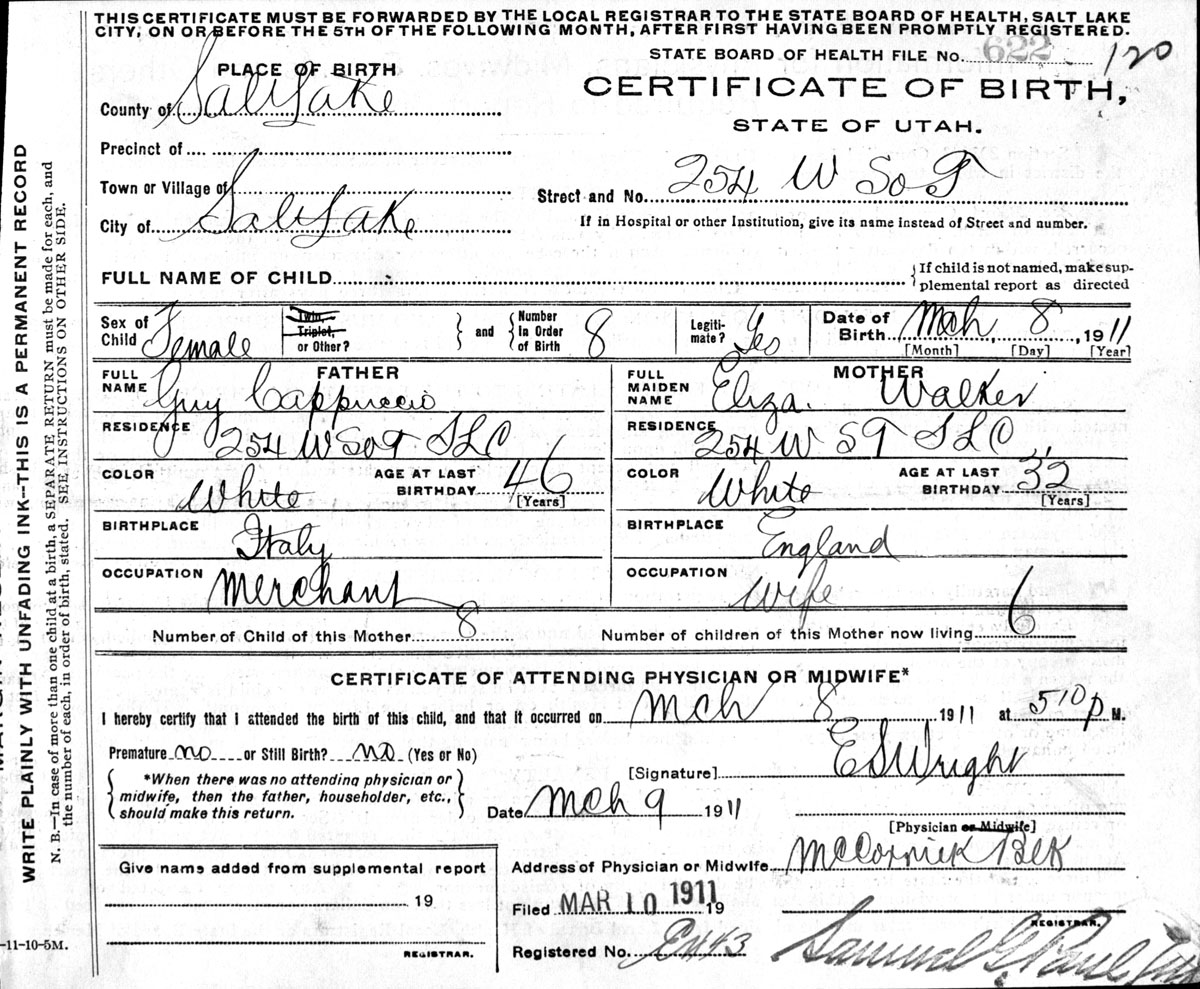 THIS CERTIFICATE MUST BE FORWARDED BY THE LOCAL REGISTRAR TO THE STATE BOARD OF HEALTH, SALT LAKE
CITY, ON OR BEFORE THE 5TH OF THE FOLLOWING MONTH, AFTER FIRST HAVING BEEN PROMPTLY REGISTERED.
STATE BOARD OF HEALTH FILE No. 622 120
PLACE OF BIRTH
CERTIFICATE OF BIRTH,
STATE OF UTAH.
County of Salt Lake
Precinct of
Town or Village of
Street and No. 254 W So T
City of Salt Lake
If in Hospital or other Institution, give its name instead of Street and number.
FULL NAME OF CHILD
{If child is not named, make sup-
plemental report as directed
Sex of Child Female
Twin, Triplet, or Other? } and { Number In Order of Birth 8
Legiti-mate? Yes
Date of Birth Mch 8, 1911
[Month] [Day] [Year]
FATHER
FULL NAME Guy Cappuccio
RESIDENCE 254 W So T SLC
COLOR White AGE AT LAST BIRTHDAY 46
[Years]
BIRTHPLACE Italy
OCCUPATION Merchant
MOTHER
FULL MAIDEN NAME Eliza. Walker
RESIDENCE 254 W ST SLC
COLOR White AGE AT LAST BIRTHDAY 32
[Years]
BIRTHPLACE England
OCCUPATION Wife
Number of Child of this Mother 8 Number of children of this Mother now living 6
CERTIFICATE OF ATTENDING PHYSICIAN OR MIDWIFE*
I hereby certify that I attended the birth of this child, and that it occurred on Mch 8 1911 at 510 p M.
Premature no or Still Birth? no (Yes or No)
[Signature] ES Wright
{ *When there was no attending physician or
midwife, then the father, householder, etc.,
should make this return. }
Date Mch 9 1911
[Physician or Midwife]
Address of Physician or Midwife McCornick Blk
Give name added from supplemental report
19
REGISTRAR.
Filed MAR 10 1911 19
REGISTRAR.
Registered No.
Samuel G Paul
WRITE PLAINLY WITH UNFADING INK--THIS IS A PERMANENT RECORD
N. B.—In case of more than one child at a birth, a SEPARATE RETURN must be made for each, and
the number of each, in order of birth, stated. SEE INSTRUCTIONS ON OTHER SIDE.
-11-10-5M.